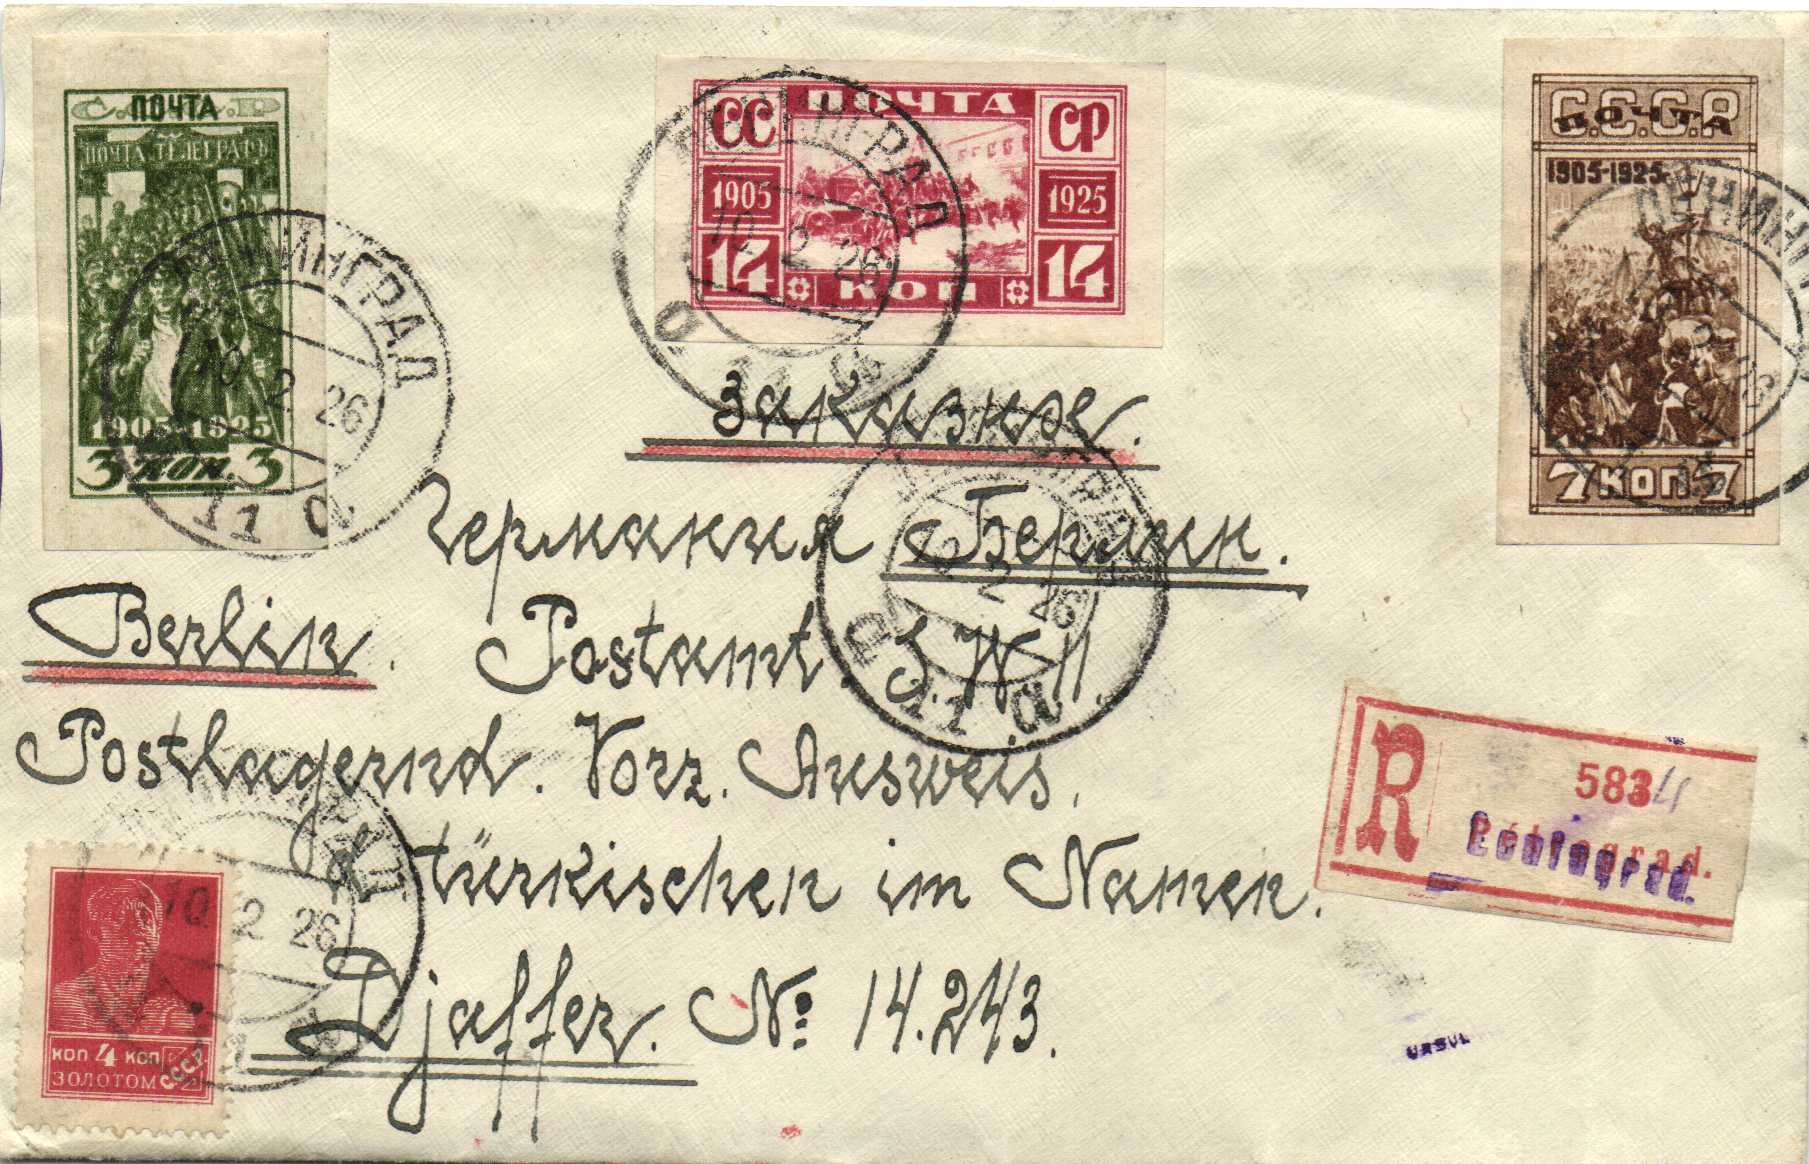 С.С.С.Р
ПОЧТА
ПОЧТА ТЕЛЕГРАФЪ
1905-1925
3 КОП. 3
ЛЕНИНГРАД
10 2 26
11 а
ПОЧТА
СС СР
1905 1925
14 14
КОП
ЛЕНИНГРАД
10 2 26
а 11 а
С.С.С.Р
ПОЧТА
1905-1925
7 КОП 7
Заказное.
Германия Берлин.
Berlin. Postamt. S.W 11.
12 2 26
11 а
Postlagernd. Vorz. Ausweis.
türkischen im Namen.
Djaffer. № 14.243.
R
583
Petrograd.
Leningrad.
10 2 26
КОП 4 КОП
ЗОЛОТОМ СССР